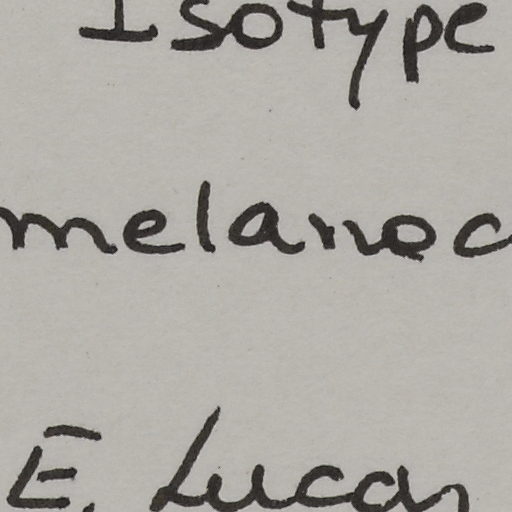 Isotype
melanoc
E. Lucas